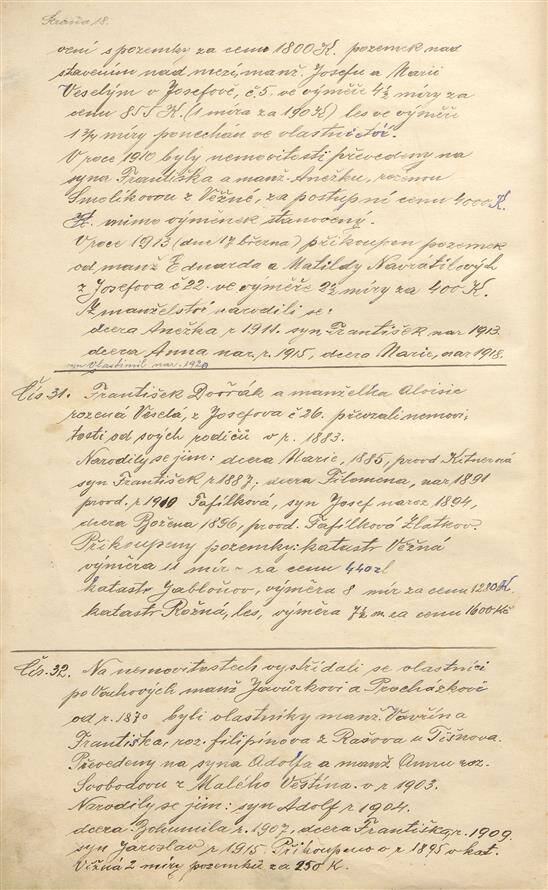 Strana 18.
vení s pozemky za cenu 1800 K. pozemek nad
stavením nad mezí, manž. Josefu a Marii
Veselým v Josefově, č.5. ve výměře 4½ míry za
cenu 855 K. (1 míra za 190 K) les ve výměře
1¾ míry ponechán ve vlastnictví.
V roce 1910 byly nemovitosti převedeny na
syna Františka a manž. Anežku, rozenou
Smolíkovou z Věžné, za postupní cenu 4000 K.
K. mimo výměnek stanovený.
V roce 1913 (dne 17. března) přikoupen pozemek
od manž Eduarda a Matildy Navrátilových
z Josefova č 22. ve výměře 2½ míry za 400 K.
Z manželství narodili se:
dcera Anežka r 1911. syn František nar 1913.
dcera Anna nar. r. 1915, dcera Marie, nar 1918.
syn Vlastimil nar. 1920
Čís. 31. František Dvořák a manželka Aloisie
rozená Veselá, z Josefova č 26. převzali nemovi-
tosti od svých rodičů v r. 1883.
Narodily se jim: dcera Marie, 1885, provd. Kitnerová
syn František r 1887; dcera Filomena, nar 1891
provd. r 1910 Fafílková, syn Josef naroz 1894,
dcera Božena 1896, provd. Fafílková Zlatkov.
Přikoupeny pozemky: katastr Věžná
výměra 11 mír - za cenu 440 zl
katastr Jabloňov, výměra 8 mír za cenu 1280 K
katastr Rožná, les, výměra 7½ m za cenu 1600 Kč
Čís. 32. Na nemovitostech vystřídali se vlastníci
po Vachových manž Javůrkovi a Procházkovi
od r. 1870 byli vlastníky manž. Vavřín a
Františka, roz. Filipínova z Rašova u Tišnova.
Převedeny na syna Adolfa a manž Annu roz.
Svobodovu z Malého Veštína. v r 1903.
Narodily se jim: syn Adolf r 1904.
dcera Bohumila r. 1907, dcera Františka r. 1909.
syn Jaroslav r 1915. Přikoupeno v r 1895 v kat.
Věžná 2 míry pozemků za 250 K.